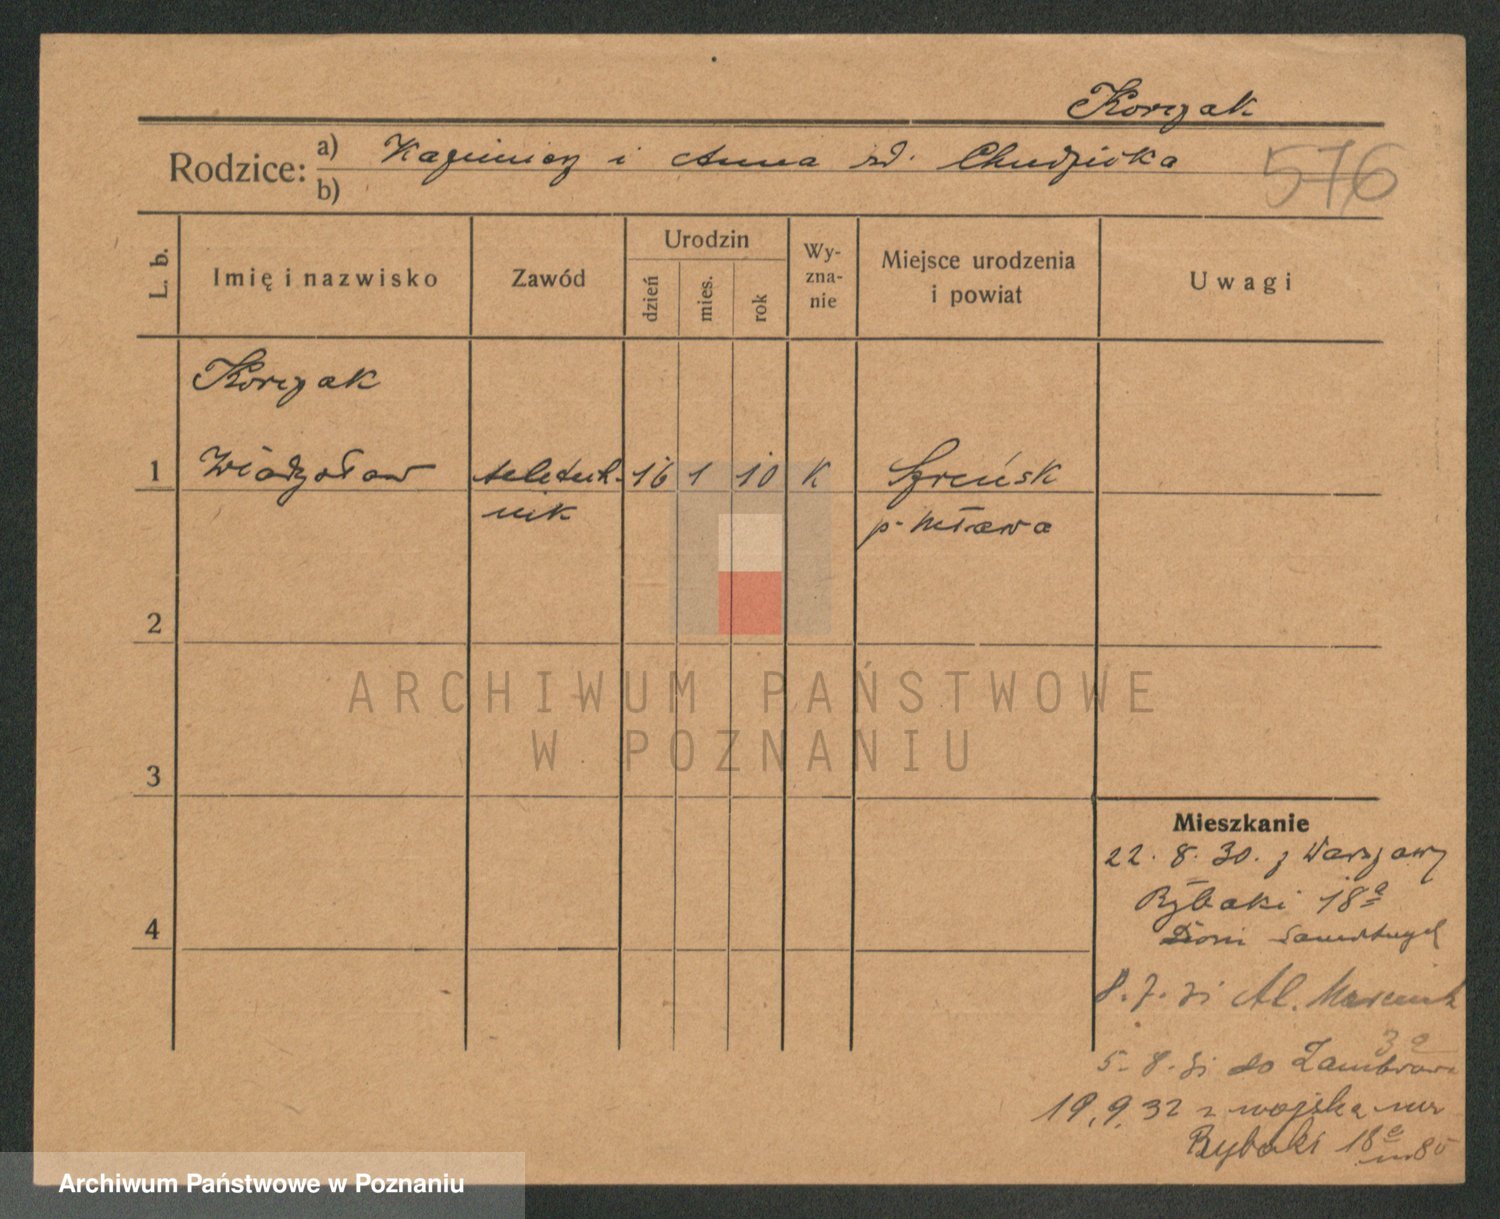 Korczak
Rodzice: a) Kazimierz i Anna zd. Chudzicka
b)
576
L. b.
Imię i nazwisko
Zawód
Urodzin
dzień
mies.
rok
Wy-
zna-
nie
Miejsce urodzenia
i powiat
Uwagi
Korczak
1 Władysław teletech- 16 1 10 K Szreńsk
nik p. Mława
2
3
4
ARCHIWUM PAŃSTWOWE
W POZNANIU
Mieszkanie
22. 8. 30. z Warszawy
Rybaki 18a
Dom
8. 7. 31 Al. Marcink
3a
5. 8. 31 do Zambrowa
19.9.32 z wojska
Rybaki 18a m 85
Archiwum Państwowe w Poznaniu